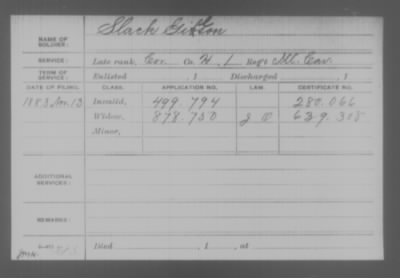 NAME OF SOLDIER: Slack
SERVICE: Late rank, Cor. Co. H. 1 Reg't Me. Cav.
TERM OF SERVICE: Enlisted , 1 Discharged , 1
DATE OF FILING. CLASS. APPLICATION NO. LAW. CERTIFICATE NO.
1883 Nov. 13 Invalid, 499.794 280.066
Widow, 878.750 639.
Minor,
ADDITIONAL SERVICES:
REMARKS:
Died , 1 , at